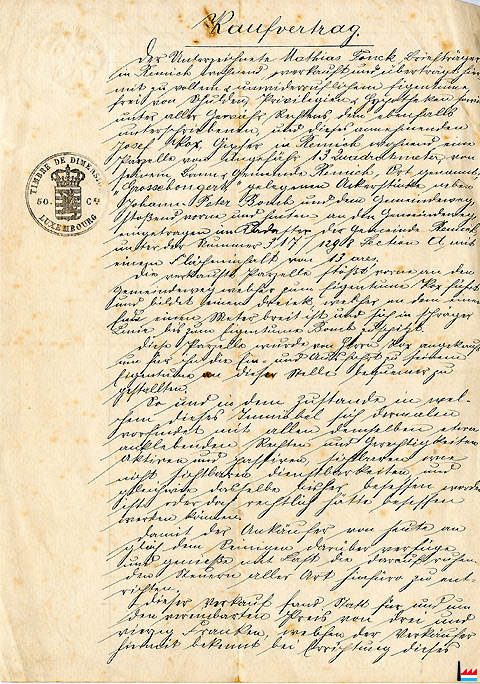 Kaufvertrag.
Der Unterzeichnete Mathias Fonck Briefträger
in Remich wohnend verkauft und überträgt hier
mit zu vollem & unwiderruflichem Eigentume
frei von Schulden, Privilegien & Hypotheken sowie
unter aller Gewähr Rechtens dem ebenfalls
unterschriebenen, und dieses annehmenden
Josef Kox, Gipser in Remich wohnend eine
Parzelle von ungefähr 15 Quadratmeter, von
seinem, Bann & Gemeinde Remich, Ort genannt
"Grossebongert" gelegenen Ackerstücke neben
Johann Peter Bonet und dem Gemeindeweg,
stoßend vorne und hinten an den Gemeindeweg
eingetragen im Kadaster der Gemeinde Remich
unter der Nummer 517/1298 Section A mit
einem Flächeninhalt von 13 ares.
Die verkaufte Parzelle stößt vorne an den
Gemeindeweg welcher zum Eigentume Kox führt
und bildet einen Dreiek, welcher an dem einen
einen Meter breit ist und sich in schräger
Linie bis zum Eigentume Bonet zuspitzt.
Diese Parzelle wurde von Herrn Kox angekauft
um für ihn die Ein- und Ausfahrt zu seinem
Eigentum an dieser Stelle bequemer zu
gestalten.
So und in dem Zustande in wel-
chem dieses Immöbel sich dermalen
vorfindet mit allen demselben etwa
anklebenden Rechten und Gerechtigkeiten
Aktiven und Passiven, sichtbaren wie
nicht sichtbaren Dienstbarkeiten und
gleichwie dasselbe bisher besessen worden
ist oder doch rechtlich hätte besessen
werden können.
Damit der Ankäufer von heute an
gleich dem Seinigen darüber verfüge
und genieße mit Last die darauf ruhen-
den Steuern aller Art hinfüro zu ent-
richten.
Dieser Verkauf fand Statt für und um
den vereinbarten Preis von drei und
vierzig Franken, welchen der Verkäufer
hiermit bekennt bei Errichtung dieses
TIMBRE DE DIMENSION
50. Cs
LUXEMBOURG